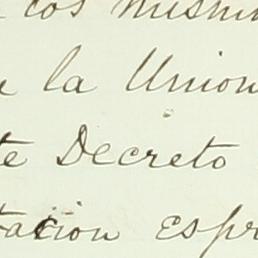 los mismo
la Union
te Decreto
tacion espr